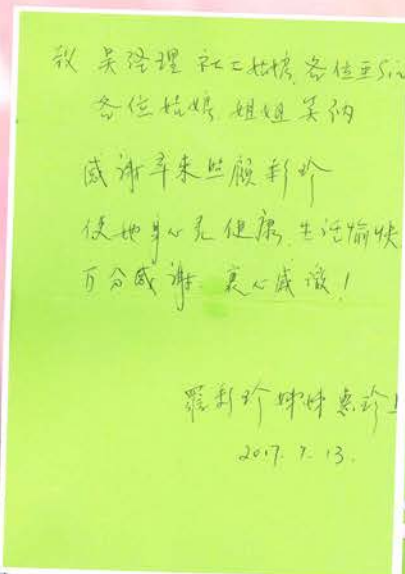 致 吴经理 社工姑娘 各位亚Sir
各位姑娘 姐姐 笑纳
感谢年来照顾彩珍
使她身心灵健康 生活愉快
万分感谢 衷心感激！
罗彩珍 妹妹 惠珍上
2017.7.13.